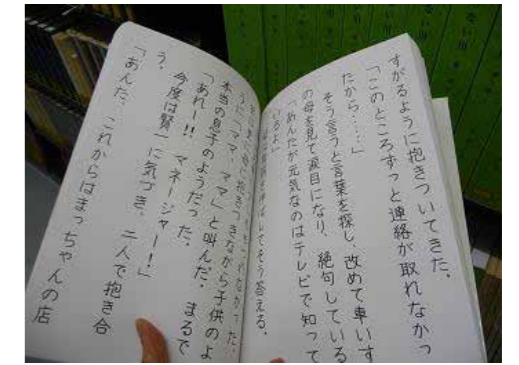 すがるように抱きついてきた。
「このところずっと連絡が取れなかっ
たから……」
そう言うと言葉を探し、改めて車いす
の母を見て涙目になり、絶句している
「あんたが元気なのはテレビで知って
いるよ」
伸ばしてそう答える。
れなかった。
母に抱きつきながら子供のよ
うに「ママ、ママ」と叫んだ。まるで
本当の息子のようだった。
「あれー!! マネージャー!」
今度は賢一に気づき、二人で抱き合
う。
「あんた、これからはまっちゃんの店